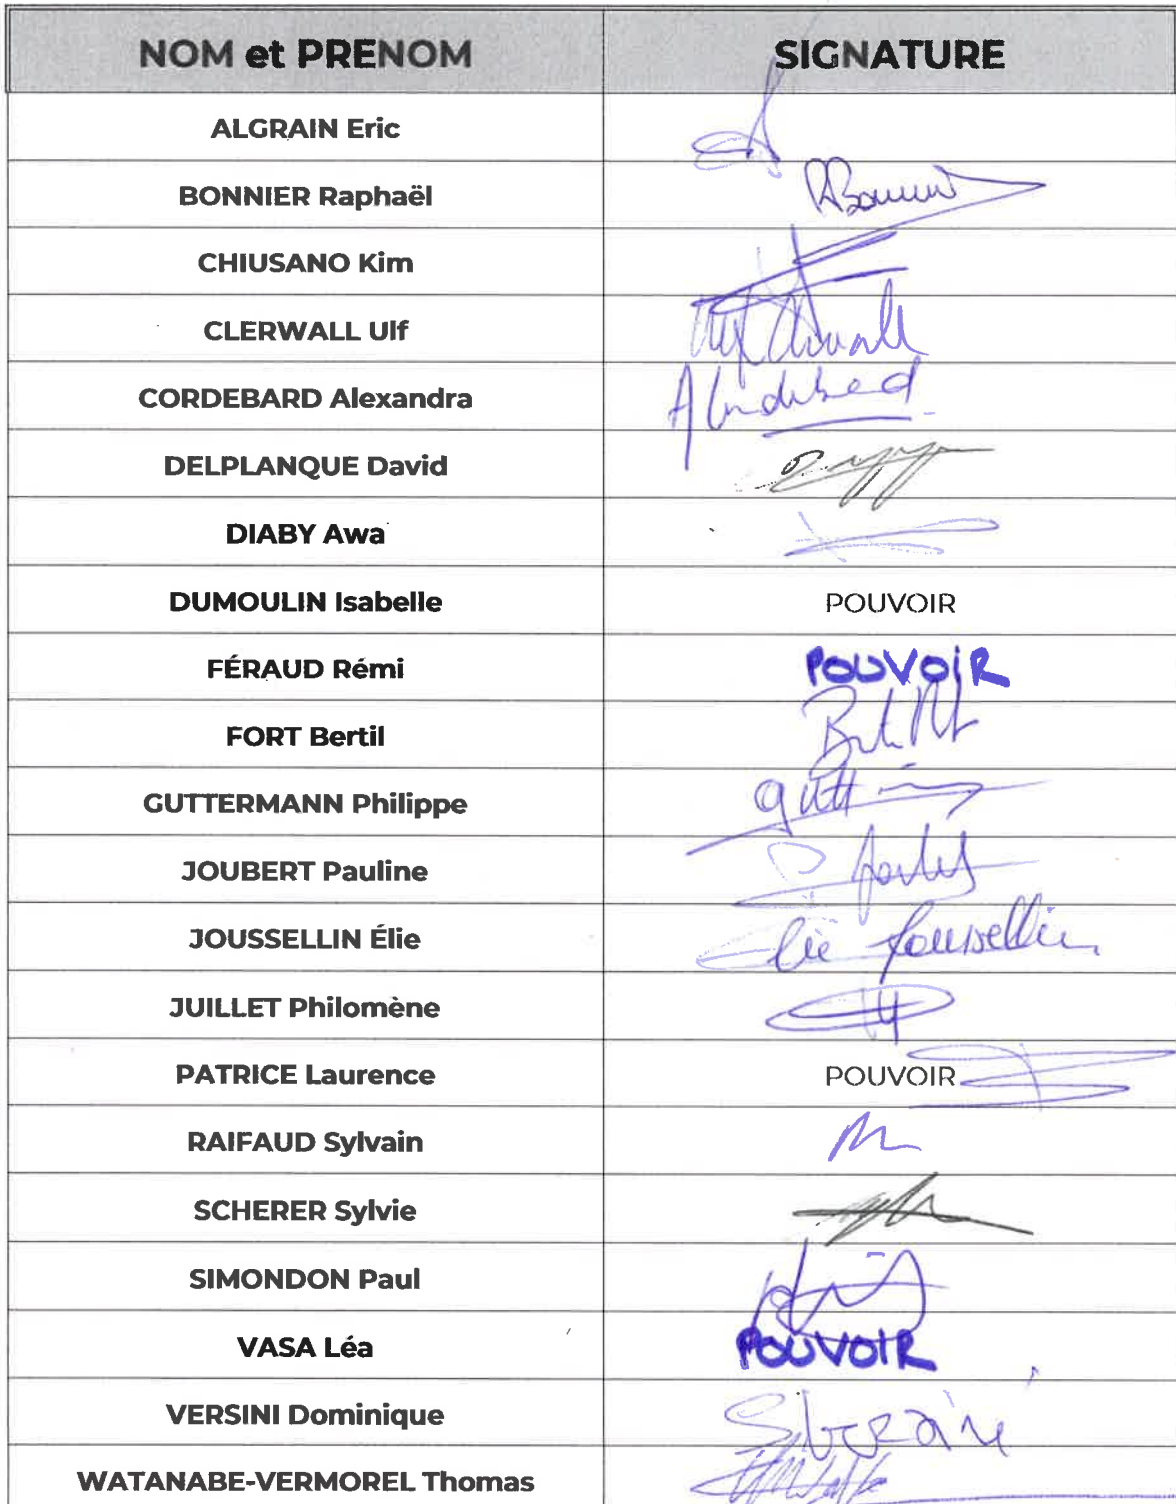 NOM et PRENOM SIGNATURE
ALGRAIN Eric
BONNIER Raphaël RBonnier
CHIUSANO Kim
CLERWALL Ulf Ulf Clerwall
CORDEBARD Alexandra ACordebard
DELPLANQUE David
DIABY Awa
DUMOULIN Isabelle POUVOIR
FÉRAUD Rémi POUVOIR
FORT Bertil
GUTTERMANN Philippe
JOUBERT Pauline
JOUSSELLIN Élie Elie Jousselin
JUILLET Philomène
PATRICE Laurence POUVOIR
RAIFAUD Sylvain
SCHERER Sylvie
SIMONDON Paul
VASA Léa POUVOIR
VERSINI Dominique
WATANABE-VERMOREL Thomas